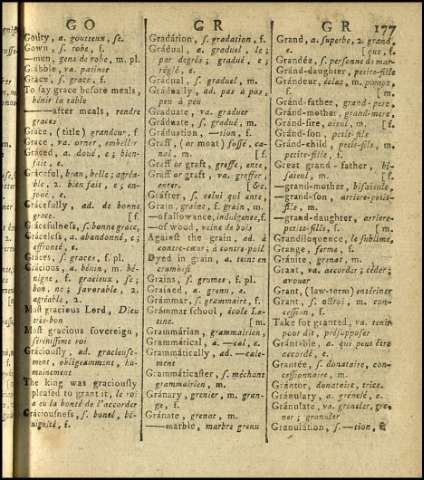 GO
GR
GR 177
Goúty, a. goutteux, se.
Gown, s. robe, f.
—men, gens de robe, m. pl.
Gabble, va. patiner
Grace, s. grace, f.
To say grace before meals,
bénir la table
——after meals, rendre
graces
Grace, (title) grandeur, f
Grace, va. orner, embellir
Gráced, a. doué, e; bien-
fait, e.
Gráceful, bien, belle; agréa-
ble, 2. bien fait, e; en-
joué, e.
Grácefully, ad. de bonne
grace. [f.
Grácefulness, s. bonne grace,
Gráceless, a. abandonné, e;
effronté, e.
Gráces, s. graces, f. pl.
Grácious, a. bénin, m. bé-
nigne, f. gracieux, se;
bon, ne; favorable, 2.
agréable, 2.
Most gracious Lord, Dieu
très-bon
Most gracious sovereign,
sérénissime roi
Gráciously, ad. gracieuse-
ment, obligeamment, hu-
mainement
The king was graciously
pleased to grant it, le roi
a eu la bonté de l'accorder
Gráciousness, s. bonté, bé-
nignité, f.
Gradátion, s. gradation, f.
Grádual, a. graduel, le;
par degrés; gradué, e;
réglé, e.
Grádual, s. graduel, m.
Grádually, ad. pas à pas,
peu à peu
Gráduate, va. graduer
Gráduate, s. gradué, m.
Graduation, —tion, f.
Graff, (or moat) fosse, ca-
nal, m. [f.
Graff or graft, greffe, ente,
Graff or graft, va. greffer,
enter. [&c.
Gráfter, s. celui qui ente,
Grain, graine, f. grain, m.
—of allowance, indulgence, f.
—of wood, veine de bois
Against the grain, ad. à
contre-cœur; à contre-poil
Dyed in grain, a. teint en
cramoisi
Grains, s. graines, f. pl.
Grained, a. grenu, e.
Grámmar, s. grammaire, f.
Grámmar school, école La-
tine. [m.
Grammárian, grammairien,
Grammátical, a. —cal, e.
Grammátically, ad. —cale-
ment
Grammáticaster, s. méchant
grammairien, m.
Gránary, grenier, m. gran-
ge, f.
Gránate, grenat, m.
—marble, marbre granu
Grand, a. superbe, 2. grand,
e. [que, f.
Grandée, s. personne de mar-
Grand-daughter, petite-fille
Grándeur, éclat, m. pompe,
f. [m.
Gránd-father, grand-pere,
Gránd-mother, grand-mere,
Gránd-sire, aïeul, m. [f.
Gránd-son, petit-fils
Gránd-child, petit-fils, m.
petite-fille, f.
Great grand-father, bi-
saïeul, m. [f.
—grand-mother, bisaïeule,
—grand-son, arriere-petit-
fils, m.
—grand-daughter, arriere-
petite-fille, f. [m.
Grandíloquence, le sublime,
Grange, ferme, f.
Gránite, grenat, m.
Grant, va. accorder; céder;
avouer
Grant, (law-term) entériner
Grant, s. octroi, m. con-
cession, f.
Take for granted, va. tenir
pour dit, présupposer
Grántable, a. qui peut être
accordé, e.
Grantée, s. donataire, con-
cessionnaire, m.
Grántor, donateur, trice.
Gránulary, a. grenelé, e.
Gránulate, va. greneler, gre-
ner, granuler
Granulation, s. —tion, f.